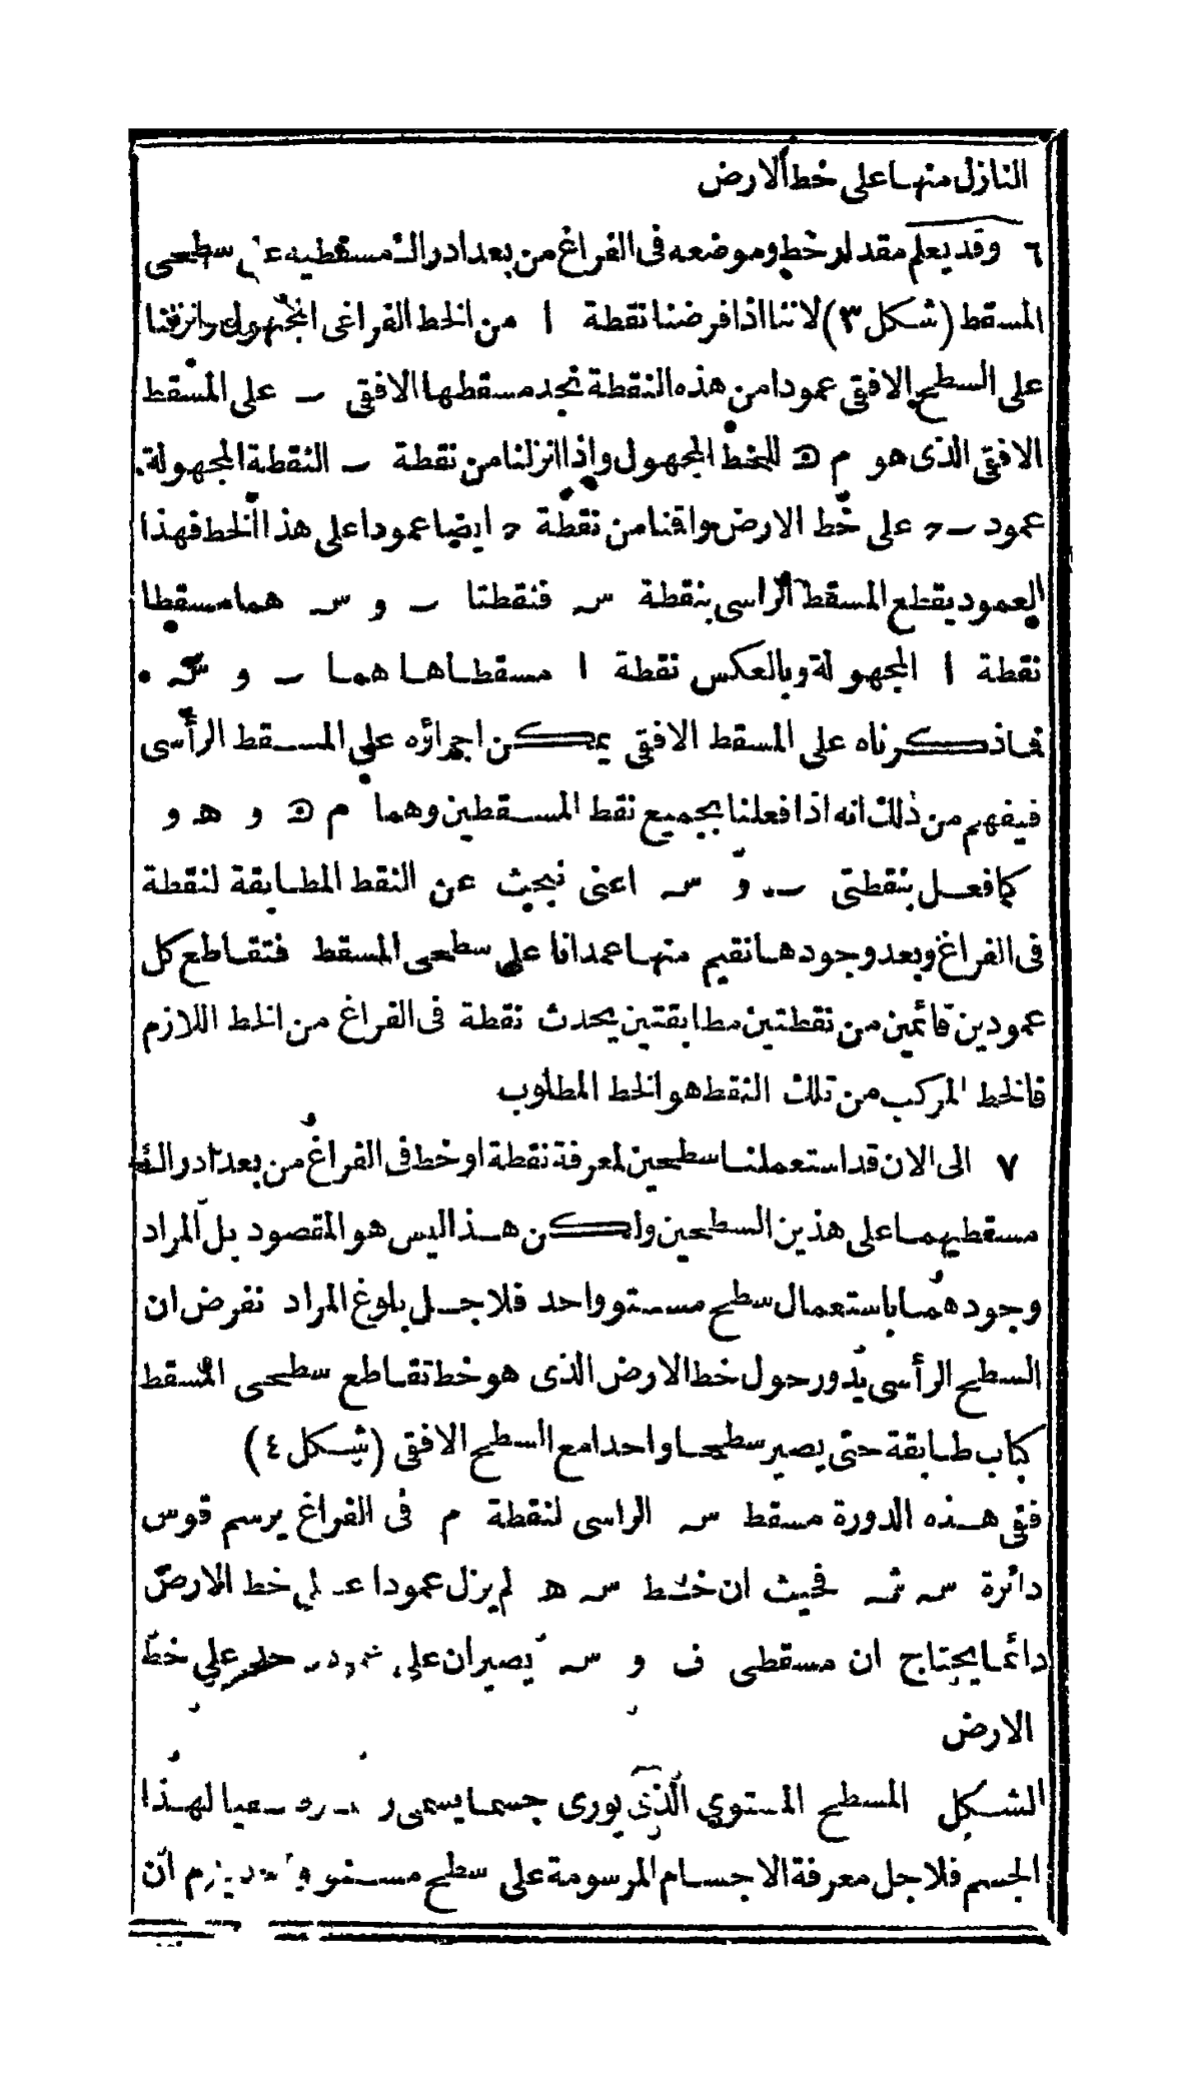 النازل منها على خط الارض
٦ وقد يعلم مقدار خط وموضعه فى الفراغ من بعد ادراك مسقطيه على سطحى
المسقط (شكل ٣) لاننا اذا فرضنا نقطة ا من الخط الفراغى المجهول وانزلنا
على السطح الافقى عمودا من هذه النقطة نجد مسقطها الافقى ـ على المسقط
الافقى الذى هو م ﻫ للخط المجهول واذا انزلنا من نقطة ـ النقطة المجهولة
عمود ـ د على خط الارض واقنا من نقطة د ايضا عمودا على هذا الخط فهذا
العمود يقطع المسقط الراسى بنقطة س فنقطتا ـ و س هما مسقطا
نقطة ا المجهولة وبالعكس نقطة ا مسقطاها هما ـ و س
فاذكرناه على المسقط الافقى يمكن اجرائره على المسقط الرأسى
فيفهم من ذلك انه اذا فعلنا بجميع نقط المسقطين وهما م ﻫ و هـ و
كما فعل بنقطتى ـ و س اعنى نبحث عن النقط المطابقة لنقطة
فى الفراغ وبعد وجودها نقيم منها عمدانا على سطحى المسقط فتقاطع كل
عمودين قائمين من نقطتين مطابقتين يحدث نقطة فى الفراغ من الخط اللازم
فالخط المركب من تلك النقط هو الخط المطلوب
٧ الى الان قد استعملنا سطحين لمعرفة نقطة او خط فى الفراغ من بعد ادراك
مسقطيهما على هذين السطحين ولكن هذا ليس هو المقصود بل المراد
وجودهما باستعمال سطح مستو واحد فلاجل بلوغ المراد نفرض ان
السطح الرأسى يدور حول خط الارض الذى هو خط تقاطع سطحى المسقط
كباب طابقة حتى يصير سطحا واحدا مع السطح الافقى (شكل ٤)
ففى هذه الدورة مسقط س الراسى لنقطة م فى الفراغ يرسم قوس
دائرة س ش فحيث ان خط س هـ لم يزل عمودا على خط الارض
دائما يحتاج ان مسقطى ف و س يصيران على عمود على خط
الارض
الشكل المسطح المستوى الذى يورى جسما يسمى لهذا
الجسم فلاجل معرفة الاجسام المرسومة على سطح مستو يلزم ان